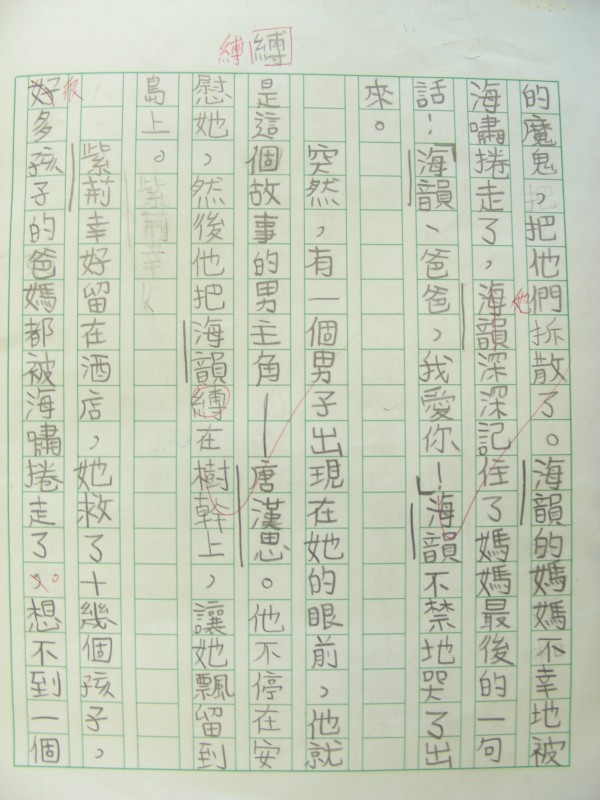 縛 縛
的魔鬼，把他們拆散了。海韻的媽媽不幸地被
海嘯捲走了，海韻深深記住了媽媽最後的一句
她
話：「海韻、爸爸，我愛你！」海韻不禁地哭了出
來。
突然，有一個男子出現在她的眼前，他就
是這個故事的男主角—唐漢思。他不停在安
慰她，然後他把海韻縛在樹幹上，讓她飄留到
島上。
紫荊幸好留在酒店，她救了十幾個孩子，
好多孩子的爸媽都被海嘯捲走了。想不到一個
很